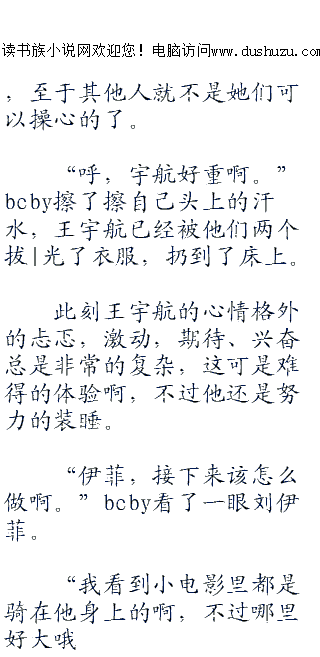 读书族小说网欢迎您！电脑访问www.dushuzu.com
，至于其他人就不是她们可
以操心的了。
“呼，宇航好重啊。”
bcby擦了擦自己头上的汗
水，王宇航已经被他们两个
拔|光了衣服，扔到了床上。
此刻王宇航的心情格外
的忐忑，激动，期待、兴奋
总是非常的复杂，这可是难
得的体验啊，不过他还是努
力的装睡。
“伊菲，接下来该怎么
做啊。”bcby看了一眼刘伊
菲。
“我看到小电影里都是
骑在他身上的啊，不过哪里
好大哦